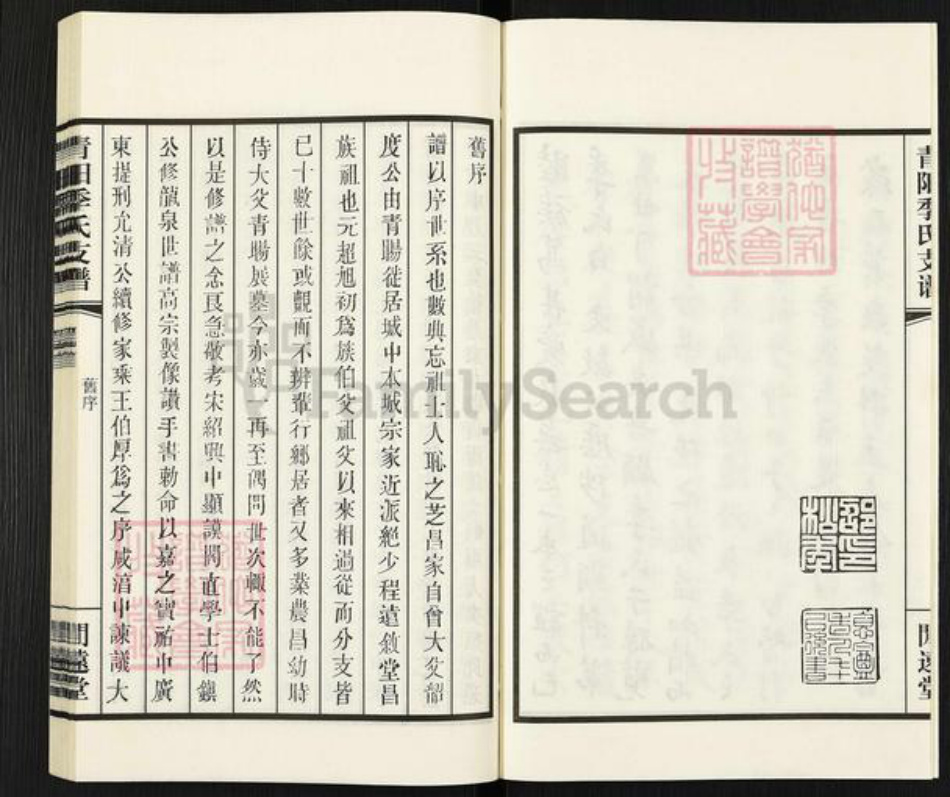 青陽季氏支譜
閒遠堂
舊序
譜以序世系也數典忘祖士人恥之芝昌家自曾大父韶
度公由青暘徙居城中本城宗家近派絕少程遠敘堂昌
族祖也元超旭初為族伯父祖父以來相過從而分支皆
已十數世餘或覿面不辨輩行鄉居者又多業農昌幼時
侍大父青暘展墓今亦歲一再至偶問世次輒不能了然
以是修譜之念良急敬考宋紹興中顯謨閣直學士伯鎮
公修龍泉世譜高宗製像讚手書勅命以嘉之寶祐中廣
東提刑允清公續修家乘王伯厚為之序咸淳中諫議大
青陽季氏支譜
舊序
閒遠堂
FamilySearch